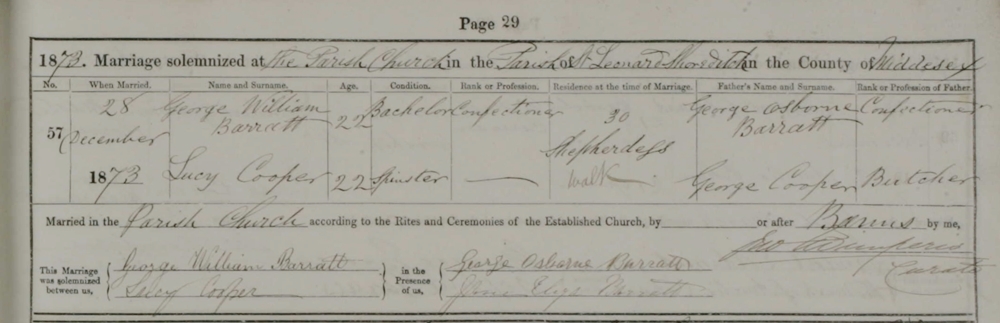 Page 29
1873. Marriage solemnized at The Parish Church in the Parish of St Leonard Shoreditch in the County of Middlesex
No. When Married. Name and Surname. Age. Condition. Rank or Profession. Residence at the time of Marriage. Father's Name and Surname. Rank or Profession of Father.
57 28 December 1873 George William Barratt 22 Bachelor Confectioner 30 Shepherdess Walk George Osborne Barratt Confectioner
Lucy Cooper 22 Spinster — George Cooper Butcher
Married in the Parish Church according to the Rites and Ceremonies of the Established Church, by or after Banns by me,
Curate
This Marriage was solemnized between us, George William Barratt
Lucy Cooper
in the Presence of us, George Osborne Barratt
Jane Eliza Barratt